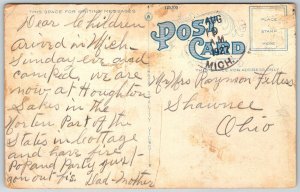 THIS SPACE FOR WRITING MESSAGES
POST CARD
Dear Children
arived in Mich
Sunday eve and
camped, we are
now at Houghton
Lakes in the
Norten Part of the
State in cottage
and have fire
Pop and Party just
gon out fis. Dad-mother
AUG
A.M.
1927
MICH.
PLACE
STAMP
HERE
Mr & Mrs Raymon
Shawnee
Ohio